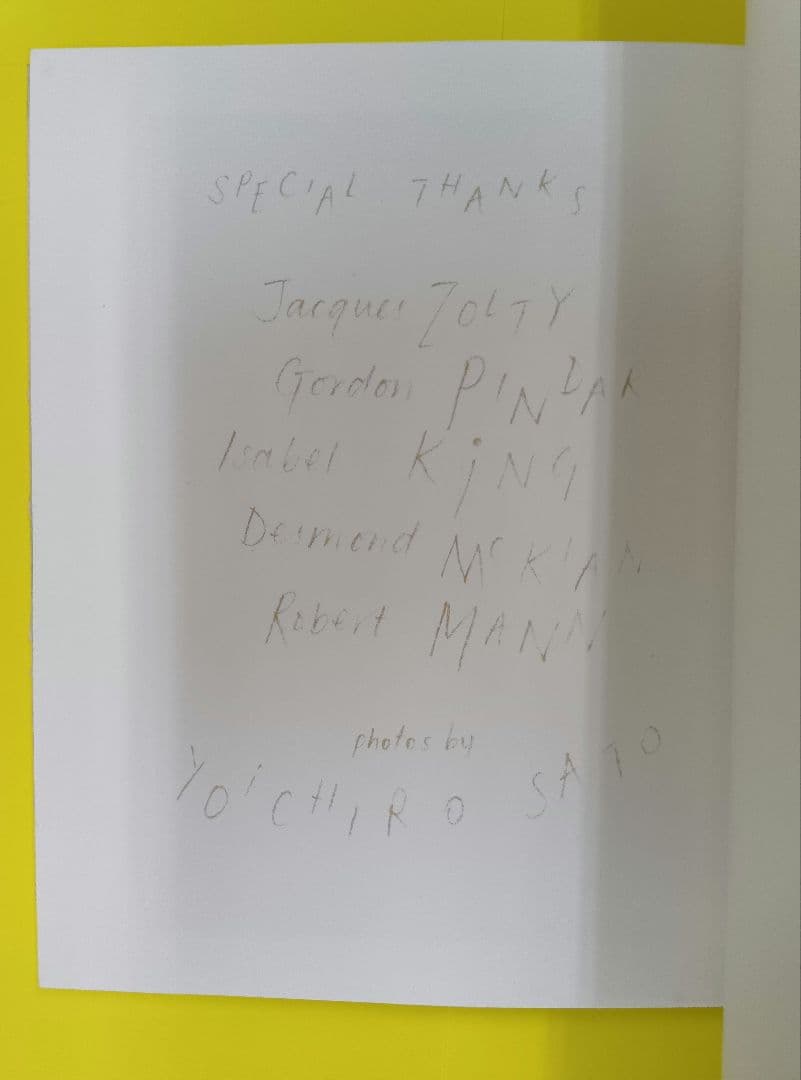 SPECIAL THANKS
Jacques ZOLTY
Gordon PINDAR
Isabel KiNG
Desmond
Robert MANN
photos by
YOiCHIRO SATO